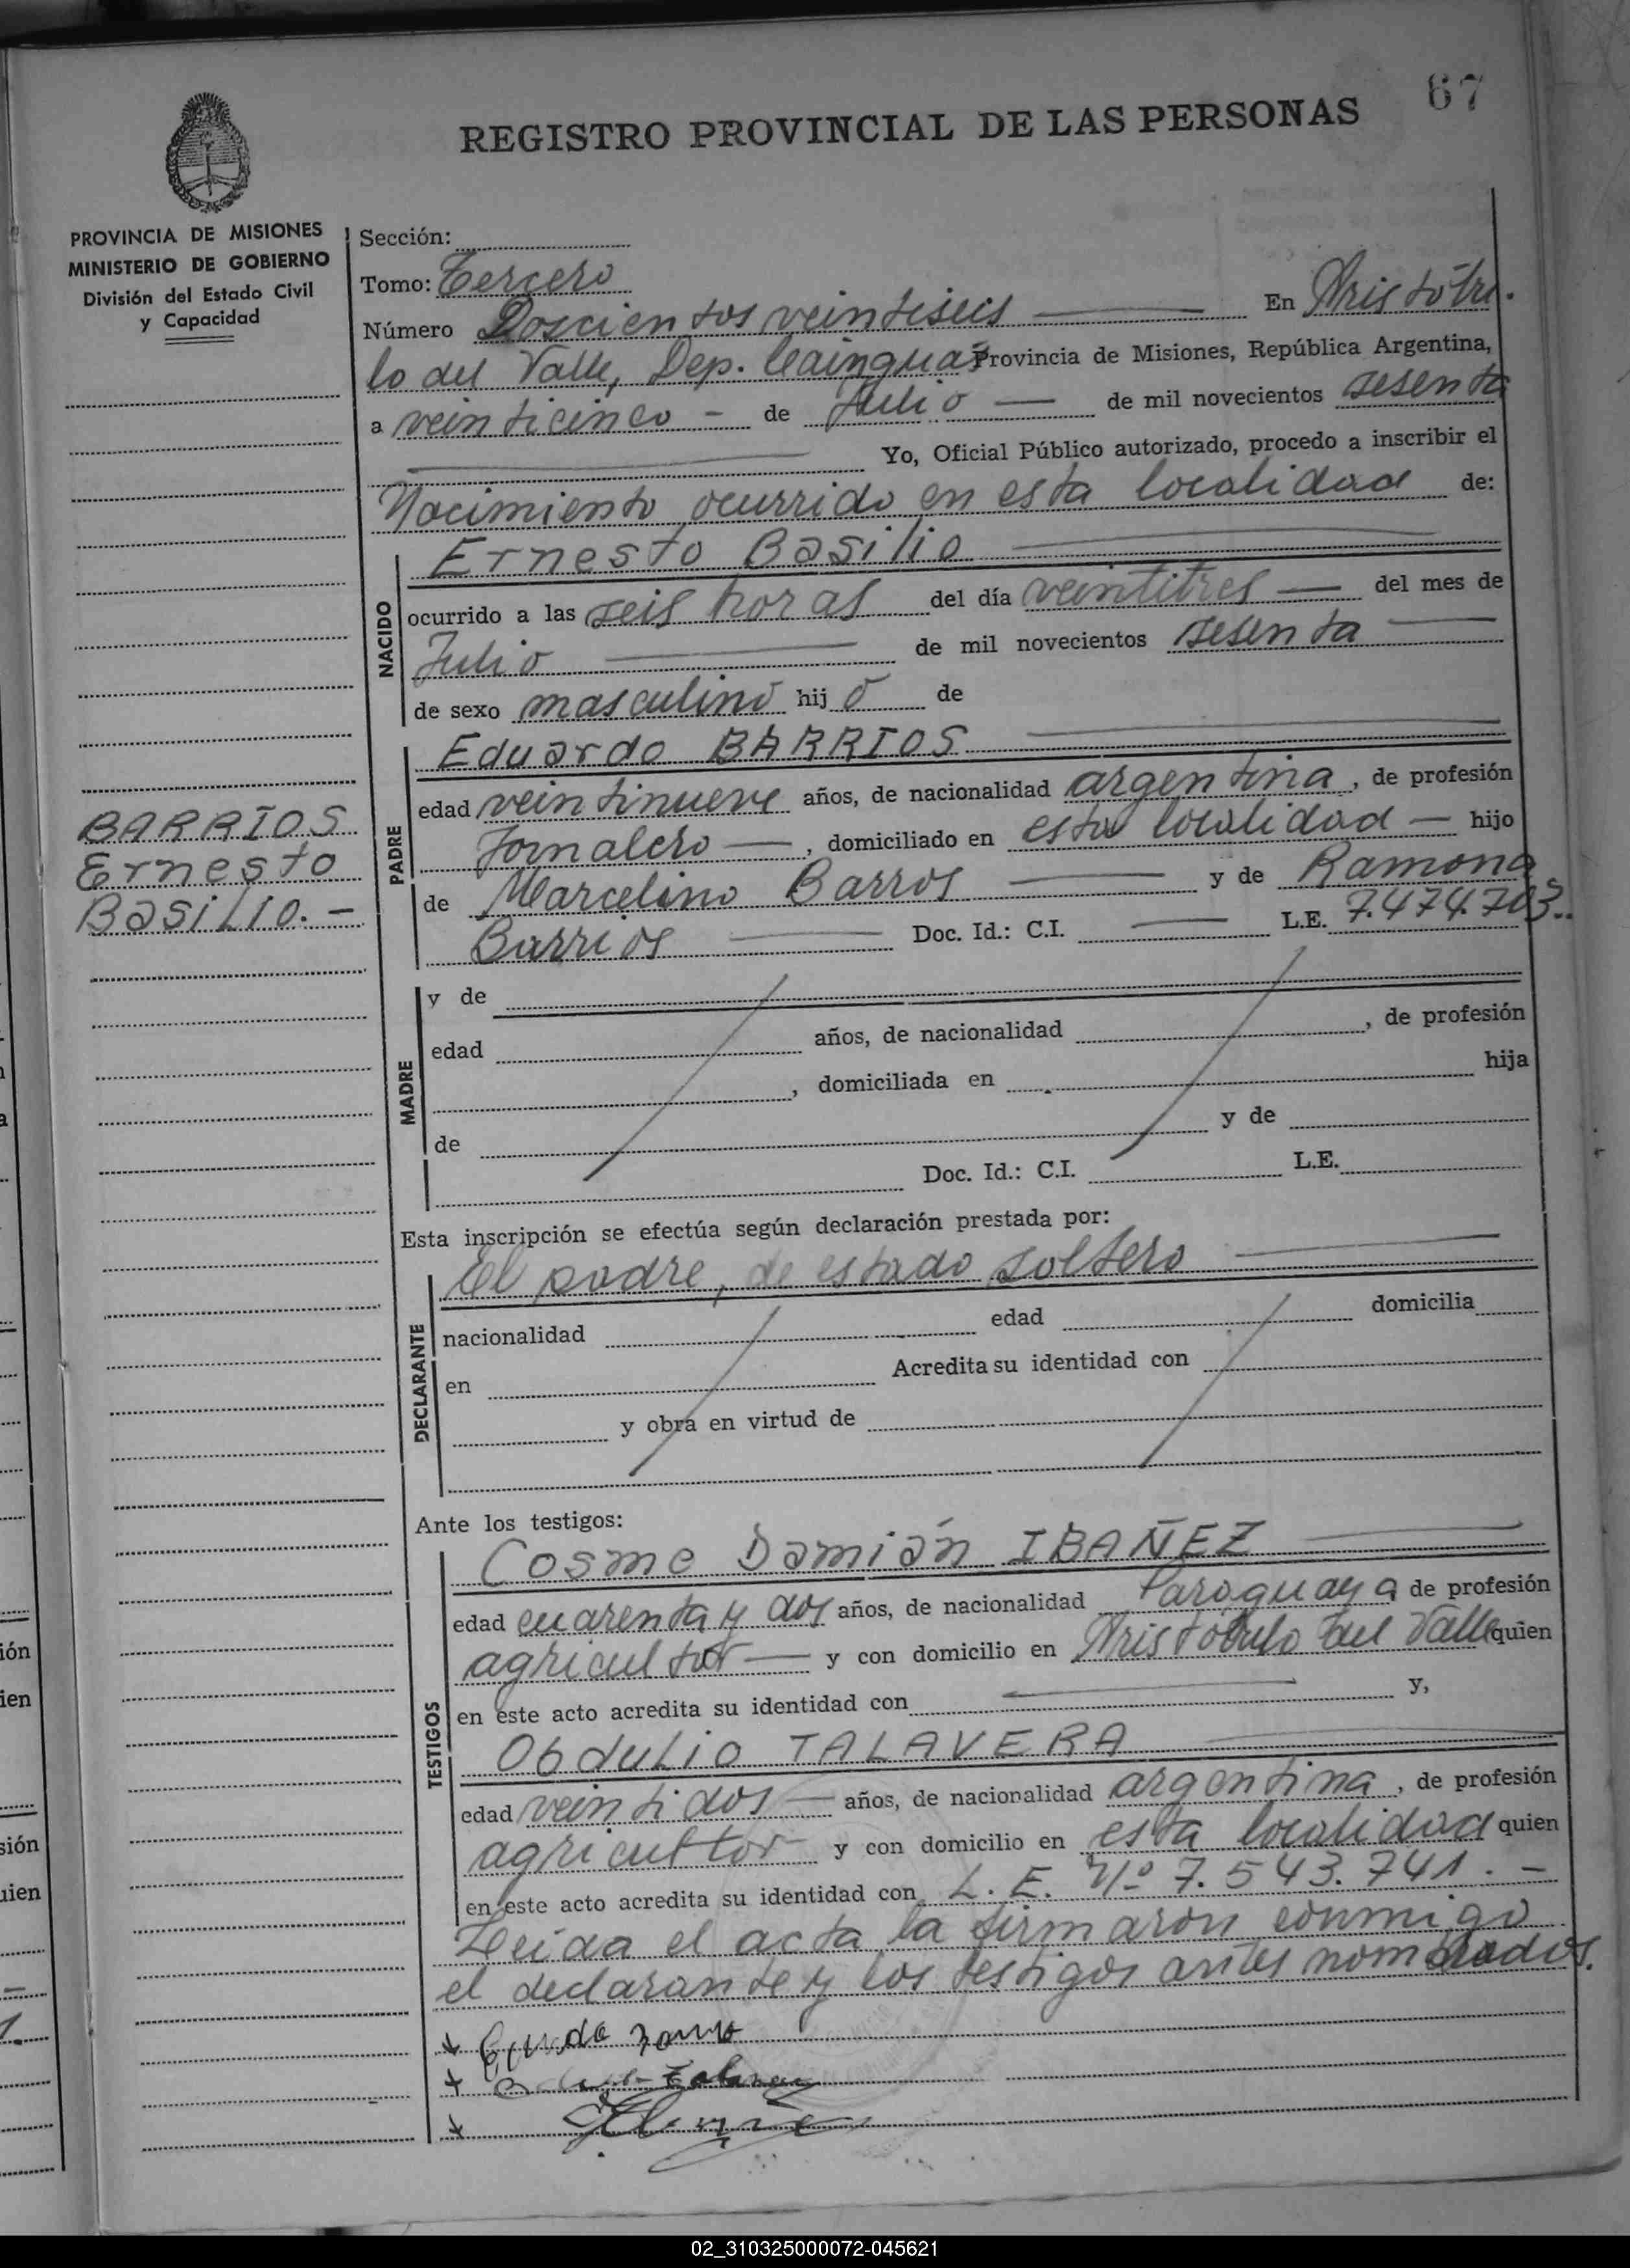 67
REGISTRO PROVINCIAL DE LAS PERSONAS
PROVINCIA DE MISIONES
MINISTERIO DE GOBIERNO
División del Estado Civil
y Capacidad
Sección:
Tomo: Tercero
Número Doscientos veintiseis En Aristóbu-
lo del Valle, Dep. Cainguás Provincia de Misiones, República Argentina,
a veinticinco - de Julio - de mil novecientos sesenta
Yo, Oficial Público autorizado, procedo a inscribir el
Nacimiento ocurrido en esta localidad de:
NACIDO
Ernesto Basilio
ocurrido a las seis horas del día veintitres - del mes de
Julio de mil novecientos sesenta
de sexo masculino hijo de
PADRE
Eduardo BARRIOS
edad veintinueve años, de nacionalidad argentina, de profesión
Jornalero -, domiciliado en esta localidad - hijo
de Marcelino Barros y de Ramona
Barrios Doc. Id.: C.I. L.E. 7.474.703..
BARRIOS
Ernesto
BasiLIO.-
MADRE
y de
edad años, de nacionalidad , de profesión
, domiciliada en hija
de y de
Doc. Id.: C.I. L.E.
Esta inscripción se efectúa según declaración prestada por:
DECLARANTE
El padre, de estado soltero
nacionalidad edad domicilia
en Acredita su identidad con
y obra en virtud de
Ante los testigos:
TESTIGOS
Cosme Damián IBAÑEZ
edad cuarenta y dos años, de nacionalidad Paraguaya de profesión
agricultor - y con domicilio en Aristóbulo del Valle quien
en este acto acredita su identidad con y,
ObduLio TALAVERA
edad veintidos - años, de nacionalidad argentina, de profesión
agricultor y con domicilio en esta localidad quien
en este acto acredita su identidad con L.E. Nº 7.543.741.-
Leída el acta la firmaron conmigo
el declarante y los testigos antes nombrados.
02_310325000072-045621